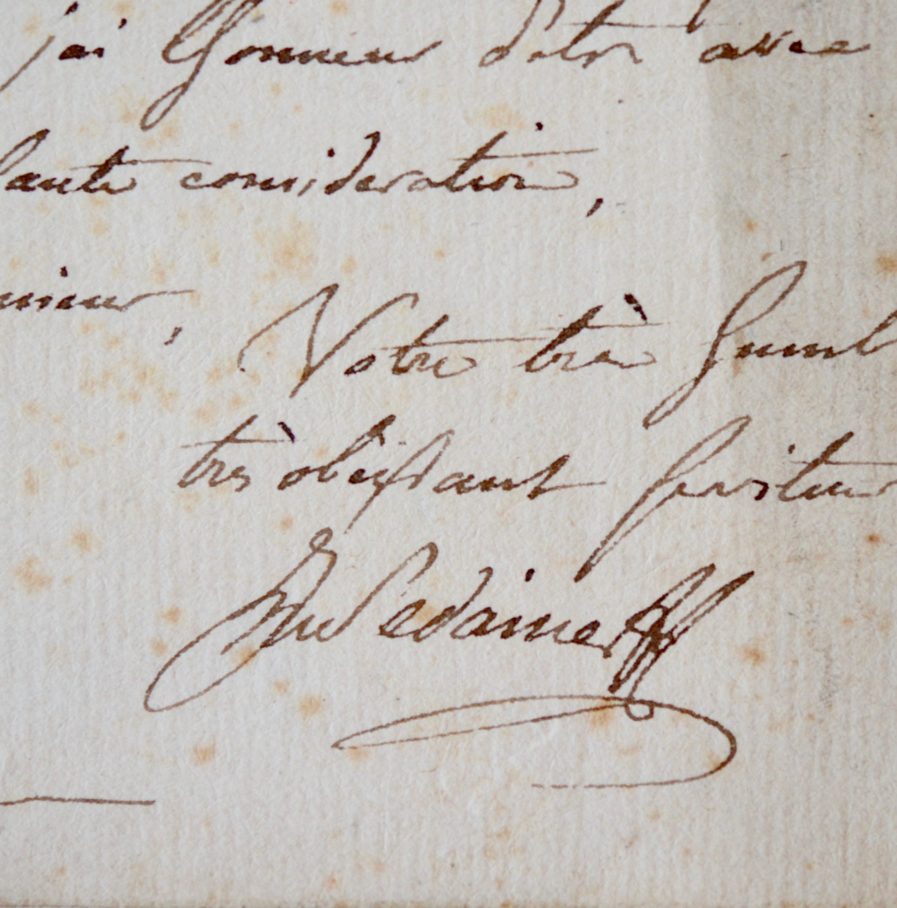 jai Lhonneur d'etre avec
haute consideration,
nsieur,
Votre très humbl
très obéissant serviteur
Sedaine